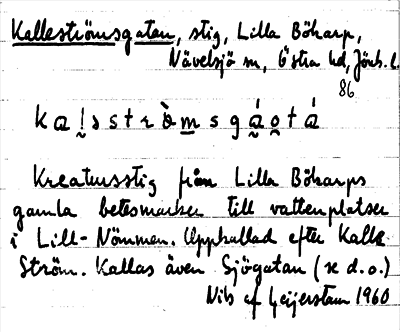 Kalleströmsgatan, stig, Lilla Bökarp,
Nävelsjö sn, Östra hd, Jönk. l.
86
kalsstròmsgáotá
Kreatursstig från Lilla Bökarps
gamla betesmarker till vattenplatser
i Lill-Nömmen. Uppkallad efter Kalle
Ström. Kallas även Sjögatan (se d.o.)
Nils af Geijerstam 1960